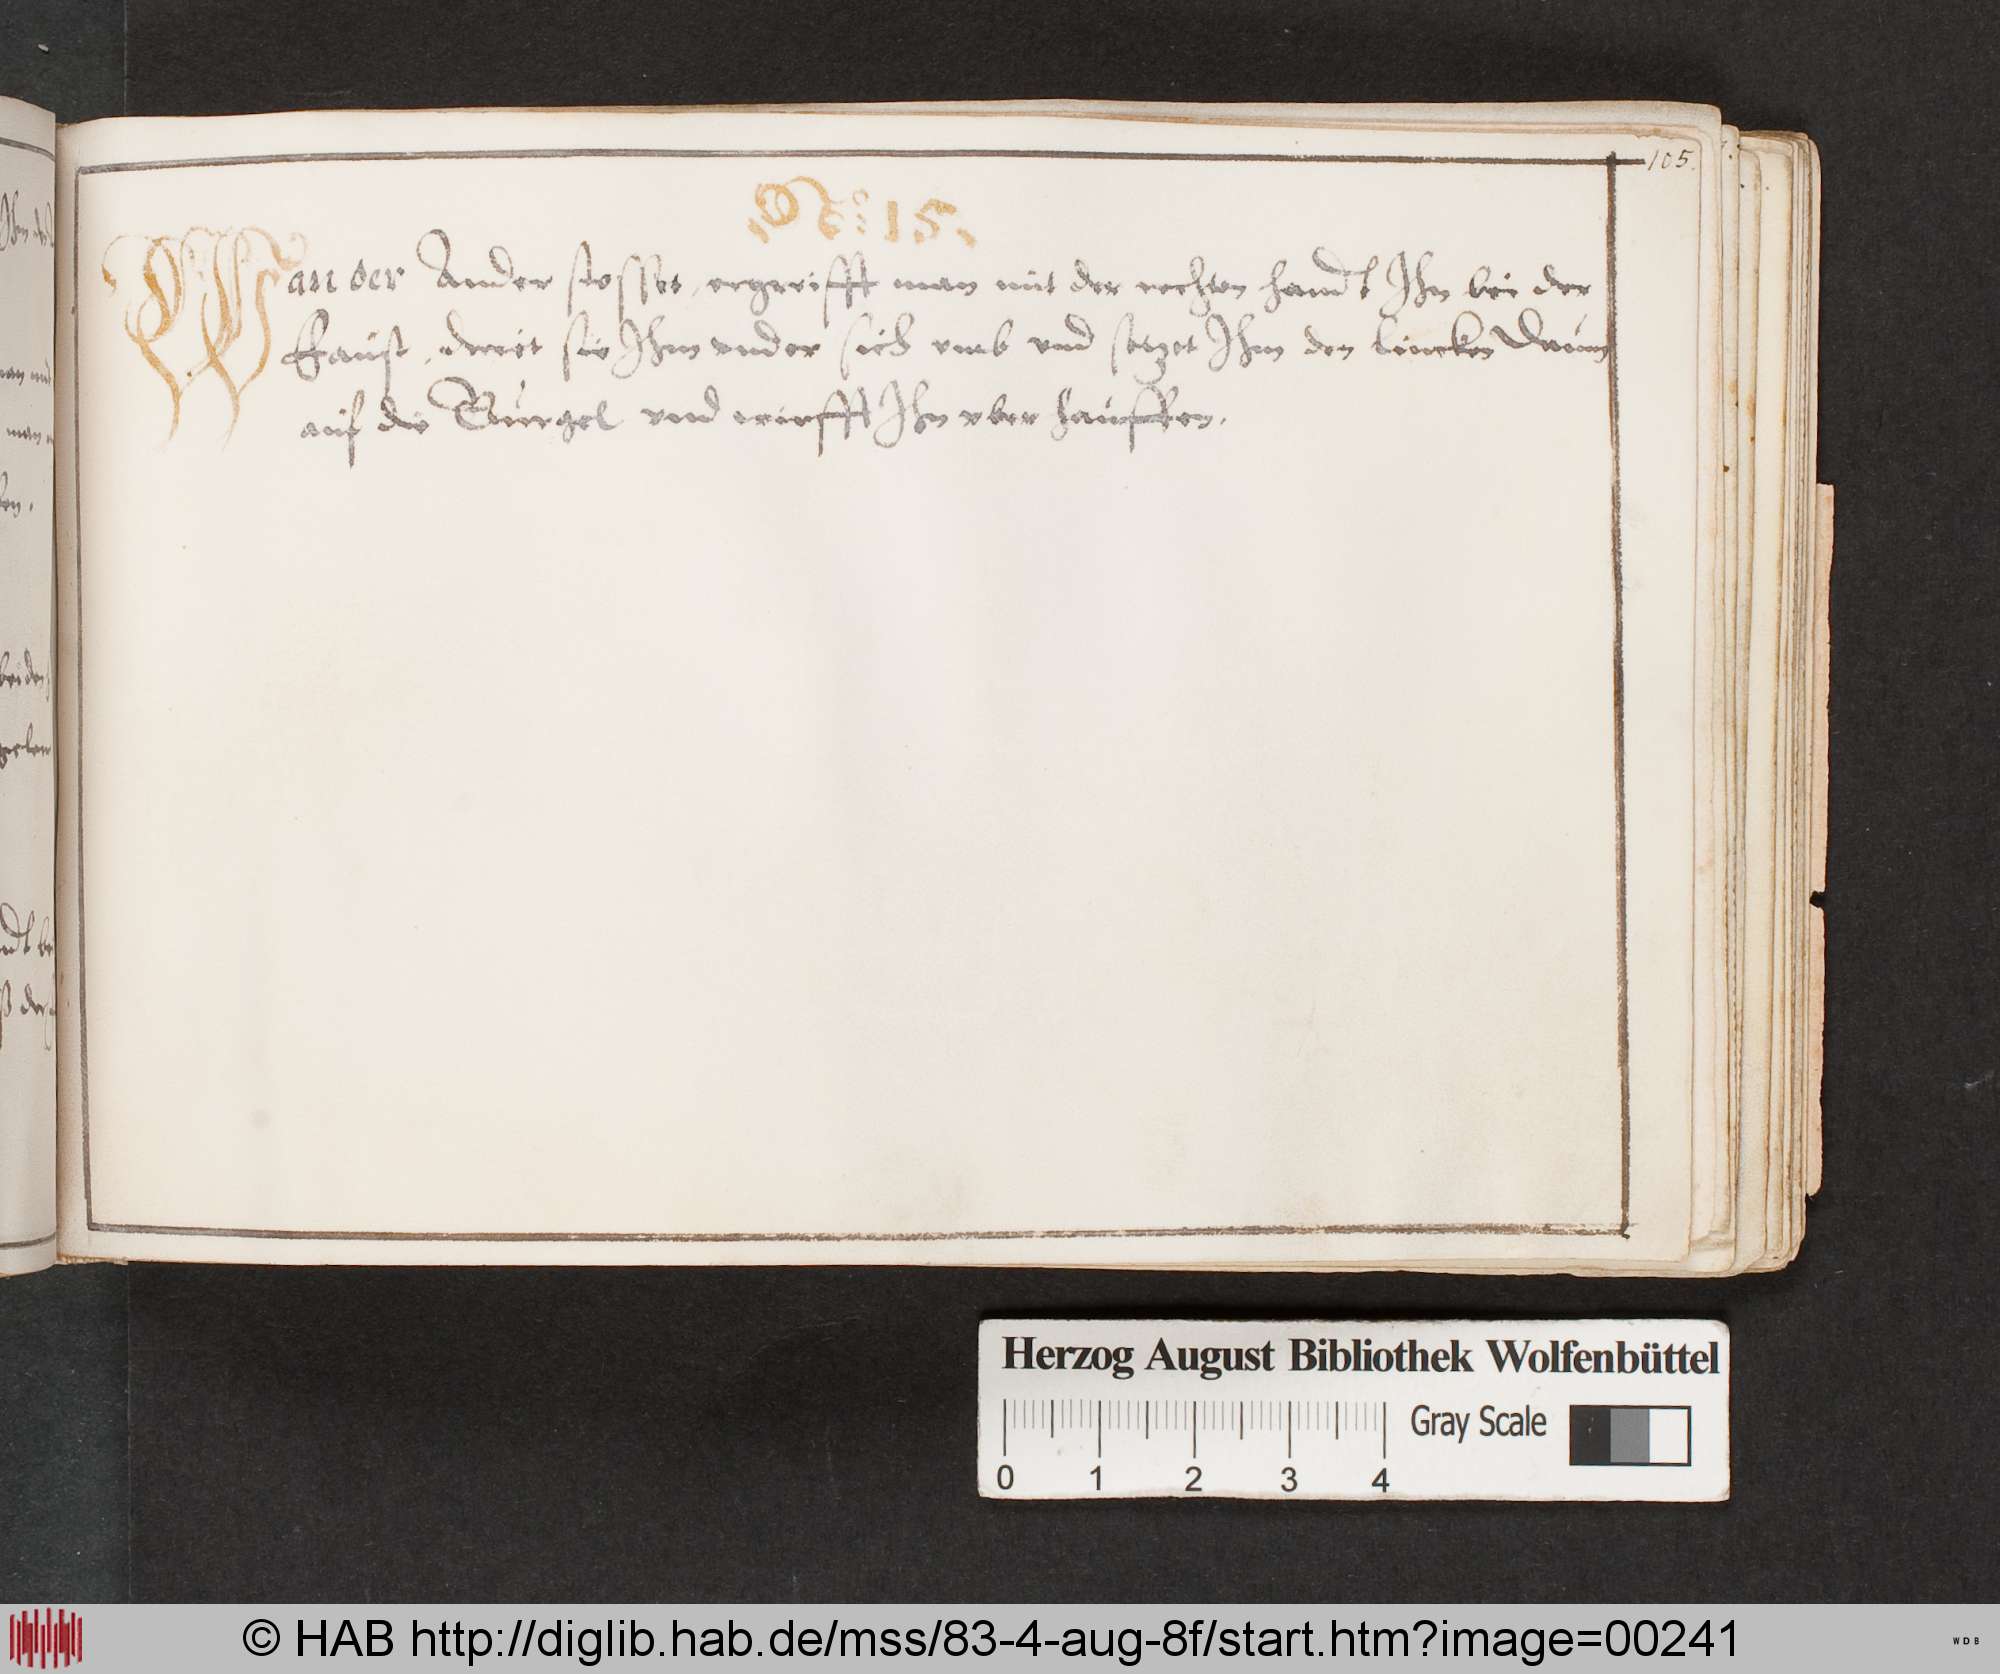 105.
N° 15.
Wan der Ander stosset, ergreifft man mit der rechten handt Ihn bei der
Faust, dreët sie Ihm vnder sich vmb vnd setzet Ihm den lincken Daum
auf die Gurgel vnd wirfft Ihn vber hauffen.
Ihm
man mit
man
fen.
bei den
Herzog August Bibliothek Wolfenbüttel
Gray Scale
0 1 2 3 4
© HAB http://diglib.hab.de/mss/83-4-aug-8f/start.htm?image=00241
WDB